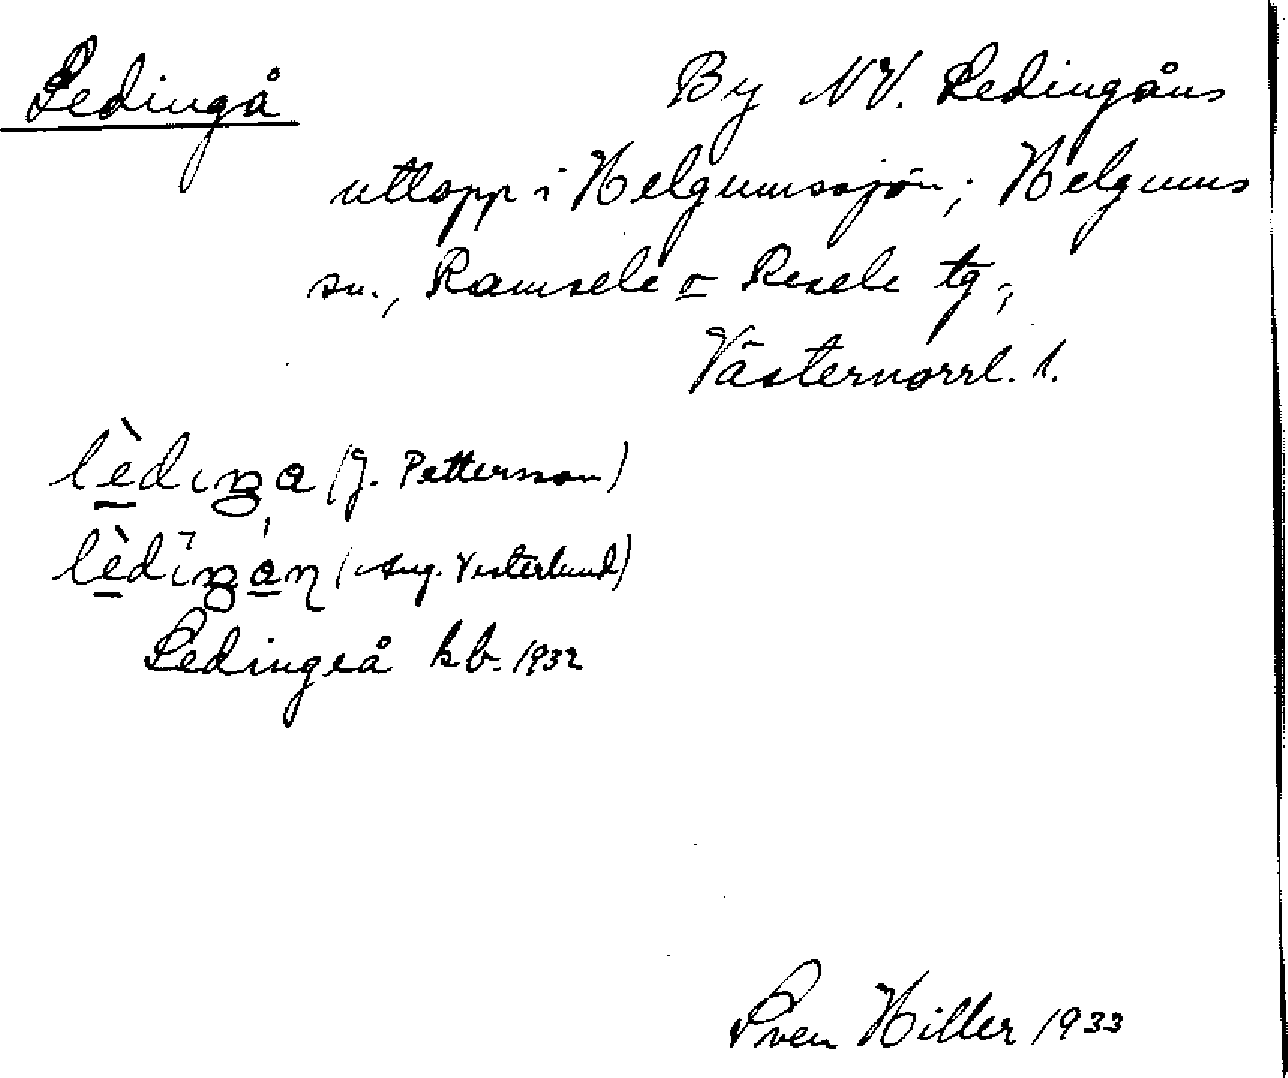 Ledingå
By NV. Ledingåns
utlopp i Helgumssjön; Helgums
sn., Ramsele o Resele tg,
Västernorrl. l.
lèdiŋa (J. Pettersson)
lèdiŋán (Aug. Vesterlund)
Ledingeå kb. 1932
Sven Hiller 1933